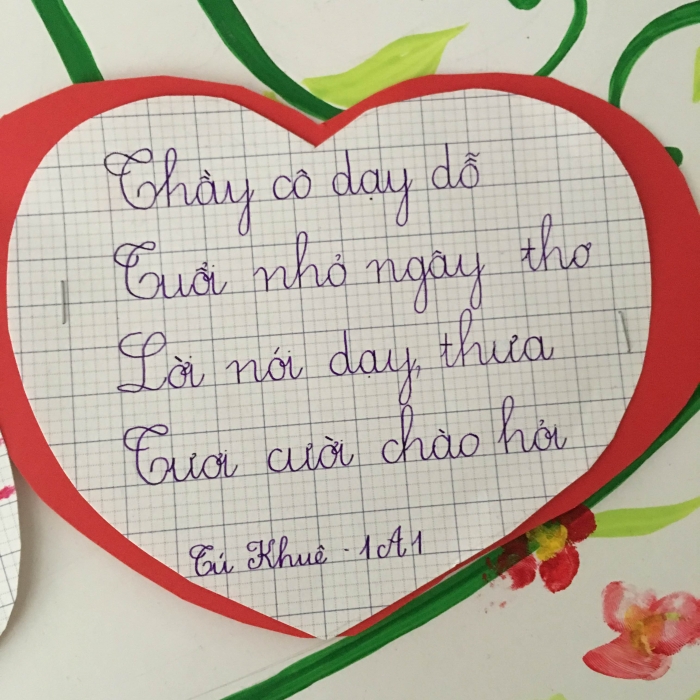 Thầy cô dạy dỗ
Tuổi nhỏ ngây thơ
Lời nói dạy, thưa
Tươi cười chào hỏi
Tú Khuê - 1A1